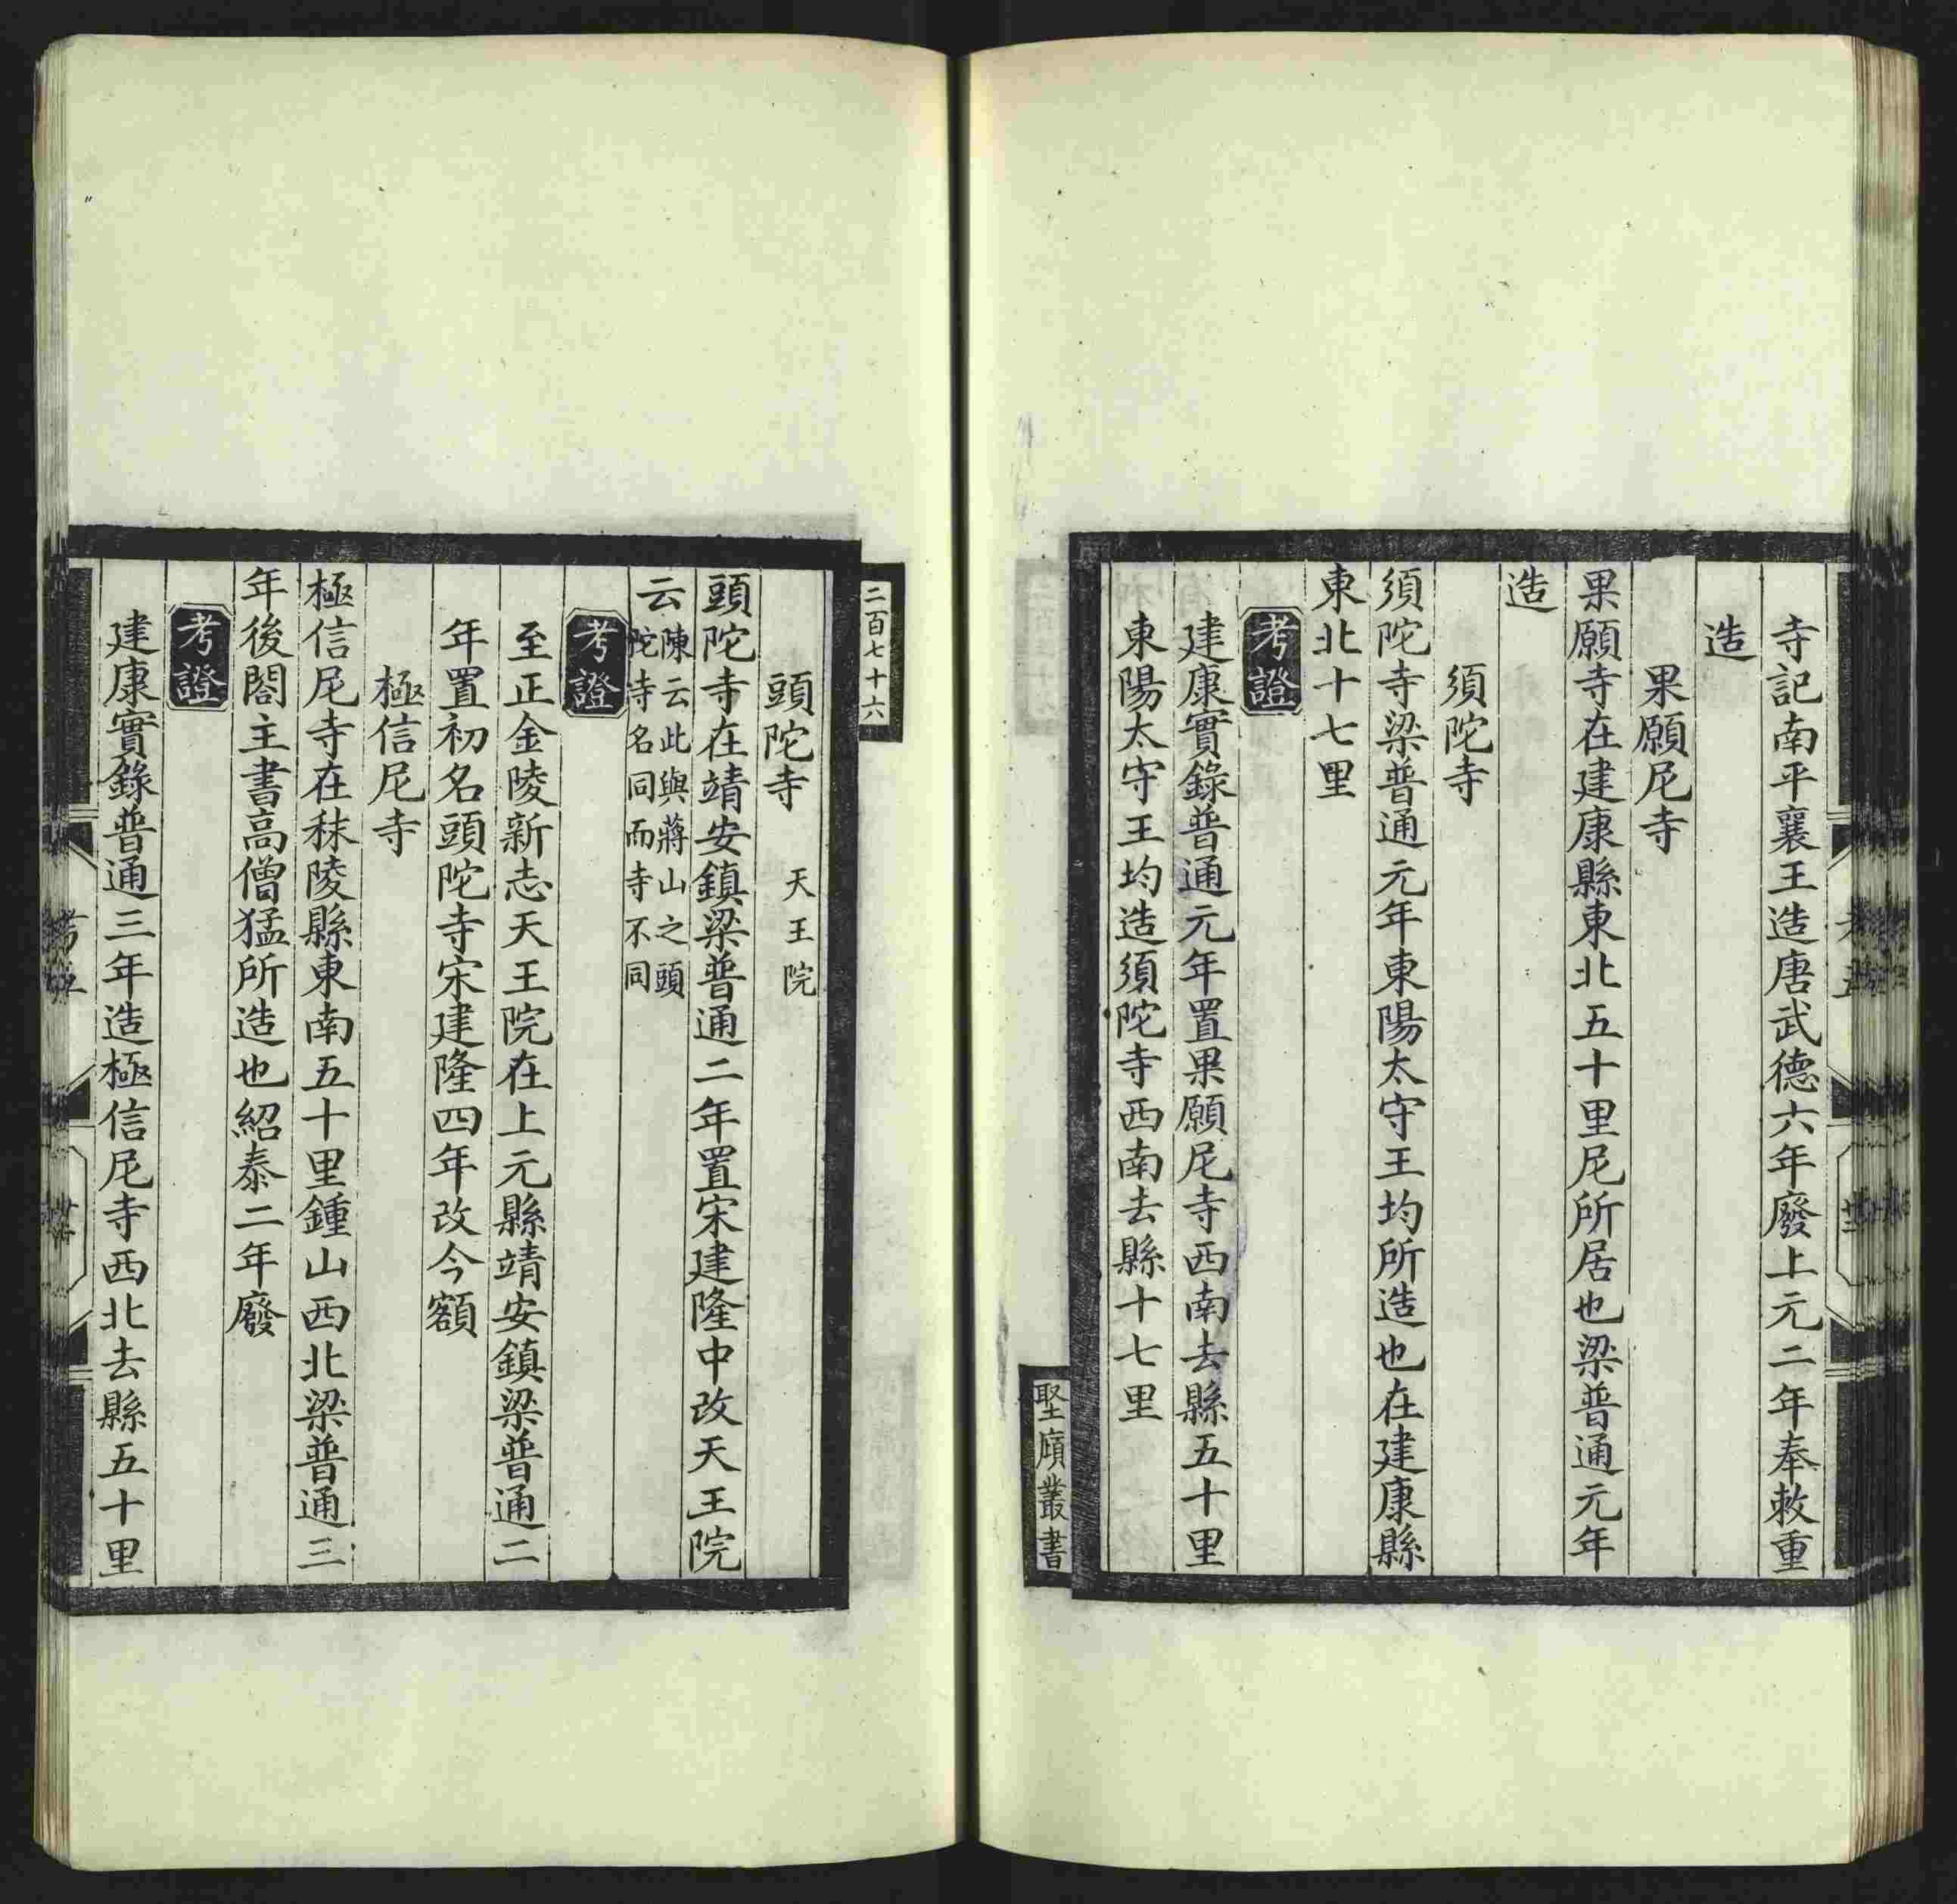 寺記南平襄王造唐武德六年廢上元二年奉敕重
造
果願尼寺
果願寺在建康縣東北五十里尼所居也梁普通元年
造
須陀寺
須陀寺梁普通元年東陽太守王均所造也在建康縣
東北十七里
考證
建康實錄普通元年置果願尼寺西南去縣五十里
東陽太守王均造須陀寺西南去縣十七里
堅廎叢書
二百七十六
頭陀寺 天王院
頭陀寺在靖安鎮梁普通二年置宋建隆中改天王院
云陳云此與蔣山之頭
陀寺名同而寺不同
考證
至正金陵新志天王院在上元縣靖安鎮梁普通二
年置初名頭陀寺宋建隆四年改今額
極信尼寺
極信尼寺在秣陵縣東南五十里鍾山西北梁普通三
年後閤主書高僧猛所造也紹泰二年廢
考證
建康實錄普通三年造極信尼寺西北去縣五十里